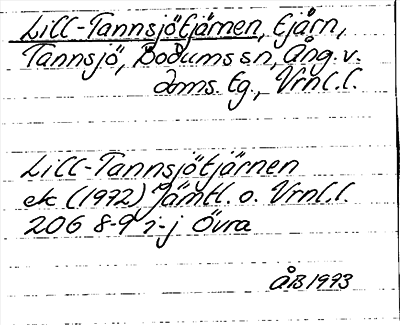 Lill-Tannsjötjärnen, tjärn,
Tannsjö, Bodums sn, Ång. v.
doms. tg., Vrnl. l.
Lill-Tannsjötjärnen
ek (1972) Jämtl. o. Vrnl. l.
206 8-9 i-j Övra
ÅB 1993